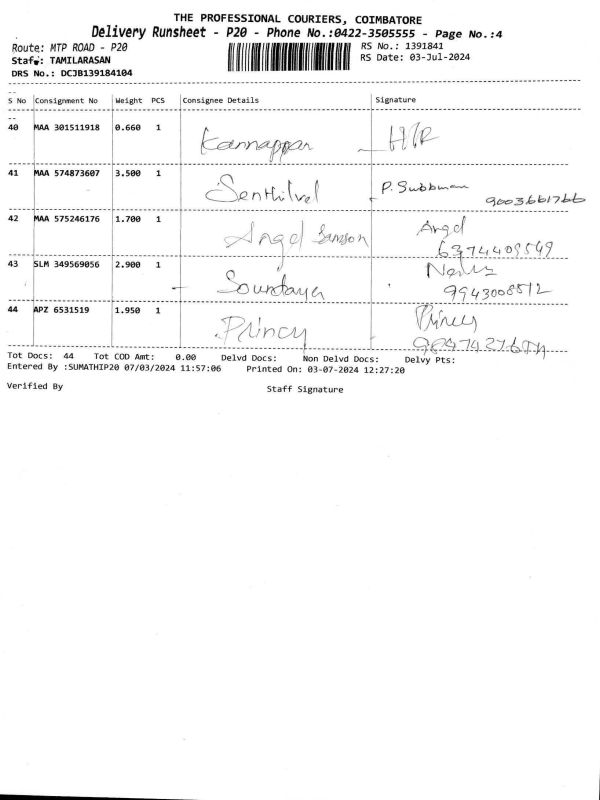 THE PROFESSIONAL COURIERS, COIMBATORE
Delivery Runsheet - P20 - Phone No.:0422-3505555 - Page No.:4
Route: MTP ROAD - P20 RS No.: 1391841
Staff: TAMILARASAN RS Date: 03-Jul-2024
DRS No.: DCJB139184104
S No Consignment No Weight PCS Consignee Details Signature
40 MAA 301511918 0.660 1 Kannappan
41 MAA 574873607 3.500 1 Senthilvel P. Subbman 9003661766
42 MAA 575246176 1.700 1 Angel Samson Angel
6374409549
43 SLM 349569056 2.900 1 Soundarya
9943008512
44 APZ 6531519 1.950 1 Princy Princy
Tot Docs: 44 Tot COD Amt: 0.00 Delvd Docs: Non Delvd Docs: Delvy Pts:
Entered By :SUMATHIP20 07/03/2024 11:57:06 Printed On: 03-07-2024 12:27:20
Verified By Staff Signature